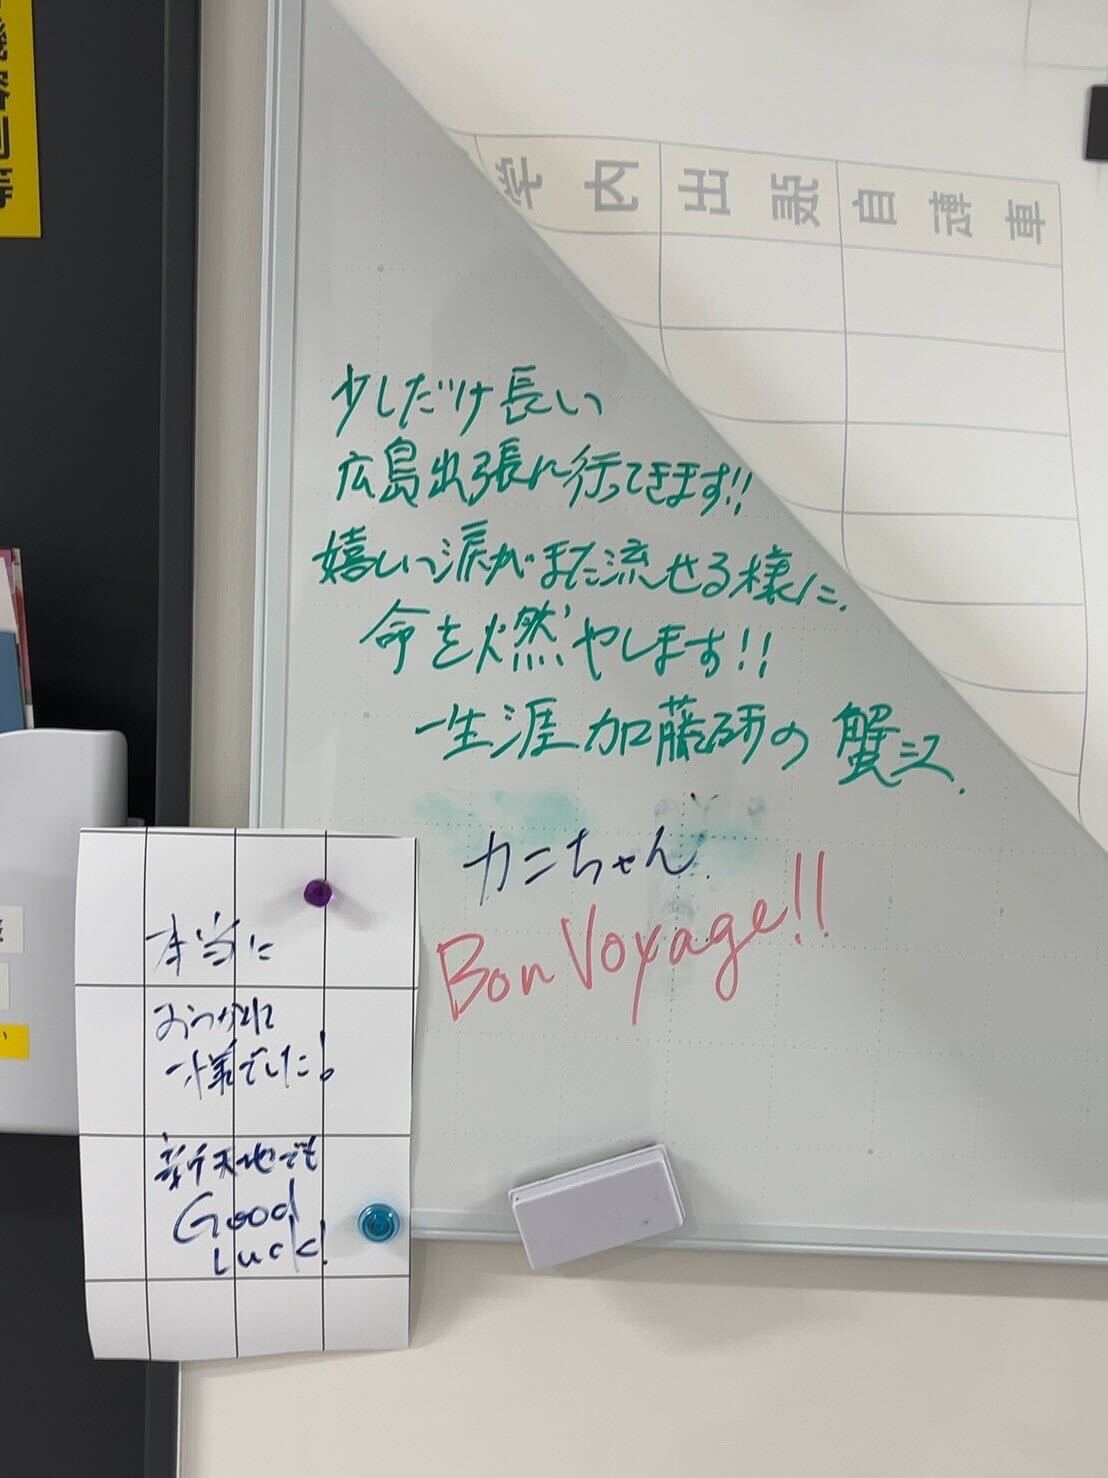 学内 出張 自転車
少しだけ長い
広島出張に行ってきます!!
嬉しい涙がまた流せる様に、
命を燃やします!!
一生涯加藤研の 蟹江.
カニちゃん
Bon Voyage!!
本当に
おつかれ
様でした!
新天地でも
Good
Luck!